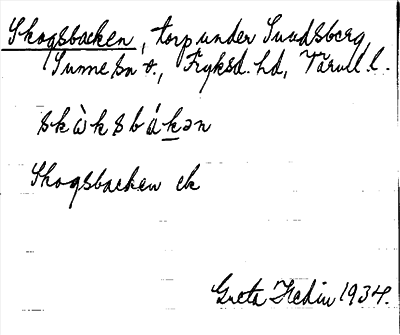 Skogsbacken, torp under Sundsberg,
Sunne sn o., Fryksd. hd, Värml. l.
skὼksbákən
Skogsbacken ek
Greta Hedin 1934.